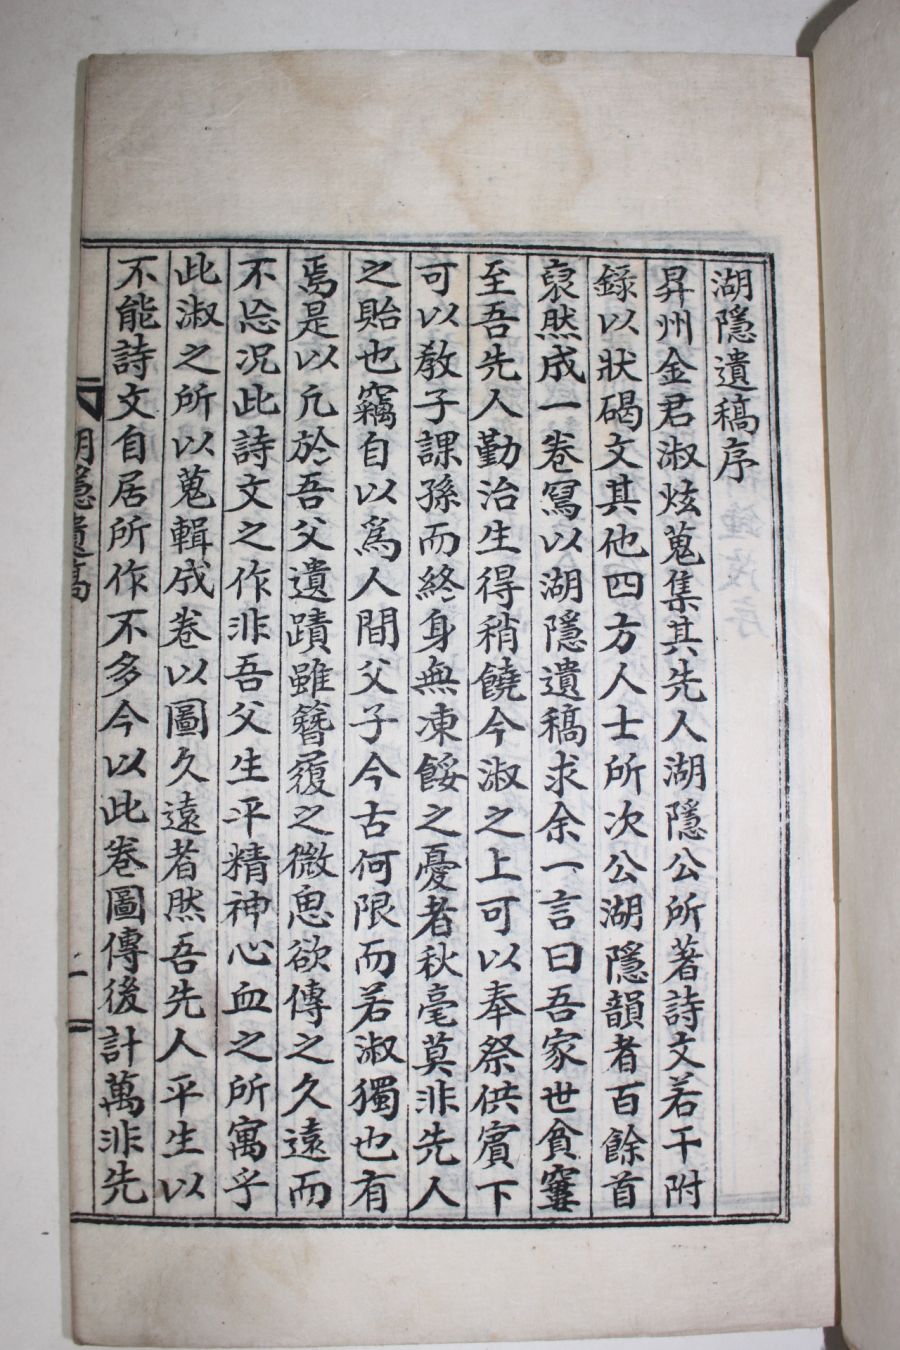 湖隱遺稿序
昇州金君淑炫蒐集其先人湖隱公所著詩文若干附
錄以狀碣文其他四方人士所次公湖隱韻者百餘首
裒然成一卷寫以湖隱遺稿求余一言曰吾家世貧窶
至吾先人勤治生得稍饒今淑之上可以奉祭供賓下
可以敎子課孫而終身無凍餒之憂者秋毫莫非先人
之貽也竊自以爲人間父子今古何限而若淑獨也有
焉是以凢於吾父遺蹟雖簪履之微思欲傳之久遠而
不忘况此詩文之作非吾父生平精神心血之所寓乎
此淑之所以蒐輯成卷以圖久遠者然吾先人平生以
不能詩文自居所作不多今以此卷圖傳後計萬非先
湖隱遺稿